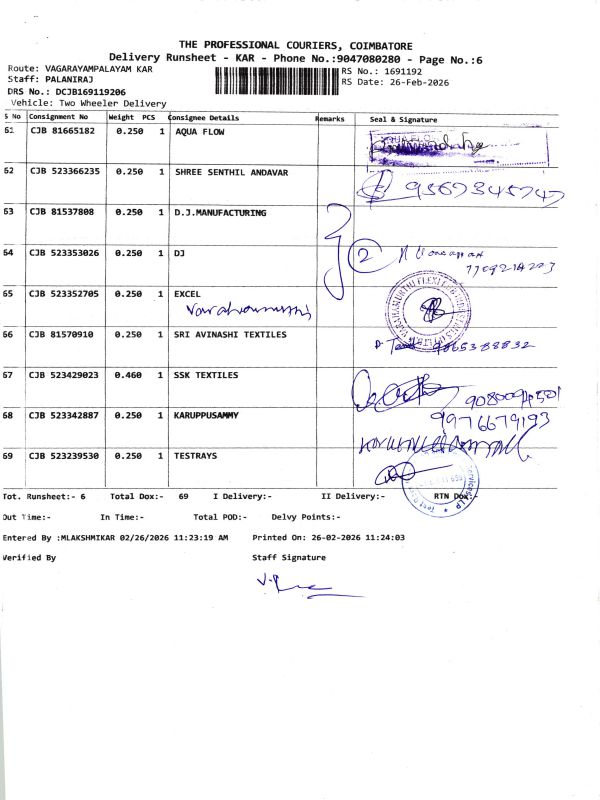 THE PROFESSIONAL COURIERS, COIMBATORE
Delivery Runsheet - KAR - Phone No.:9047080280 - Page No.:6
Route: VAGARAYAMPALAYAM KAR
RS No.: 1691192
Staff: PALANIRAJ
RS Date: 26-Feb-2026
DRS No.: DCJB169119206
Vehicle: Two Wheeler Delivery
S No Consignment No Weight PCS Consignee Details Remarks Seal & Signature
61 CJB 81665182 0.250 1 AQUA FLOW
62 CJB 523366235 0.250 1 SHREE SENTHIL ANDAVAR
63 CJB 81537808 0.250 1 D.J.MANUFACTURING
64 CJB 523353026 0.250 1 DJ 2
65 CJB 523352705 0.250 1 EXCEL
66 CJB 81570910 0.250 1 SRI AVINASHI TEXTILES
9865388832
67 CJB 523429023 0.460 1 SSK TEXTILES
68 CJB 523342887 0.250 1 KARUPPUSAMMY
9976679193
69 CJB 523239530 0.250 1 TESTRAYS
Tot. Runsheet:- 6 Total Dox:- 69 I Delivery:- II Delivery:- RTN Dox:-
Out Time:- In Time:- Total POD:- Delvy Points:-
Entered By :MLAKSHMIKAR 02/26/2026 11:23:19 AM Printed On: 26-02-2026 11:24:03
Verified By Staff Signature